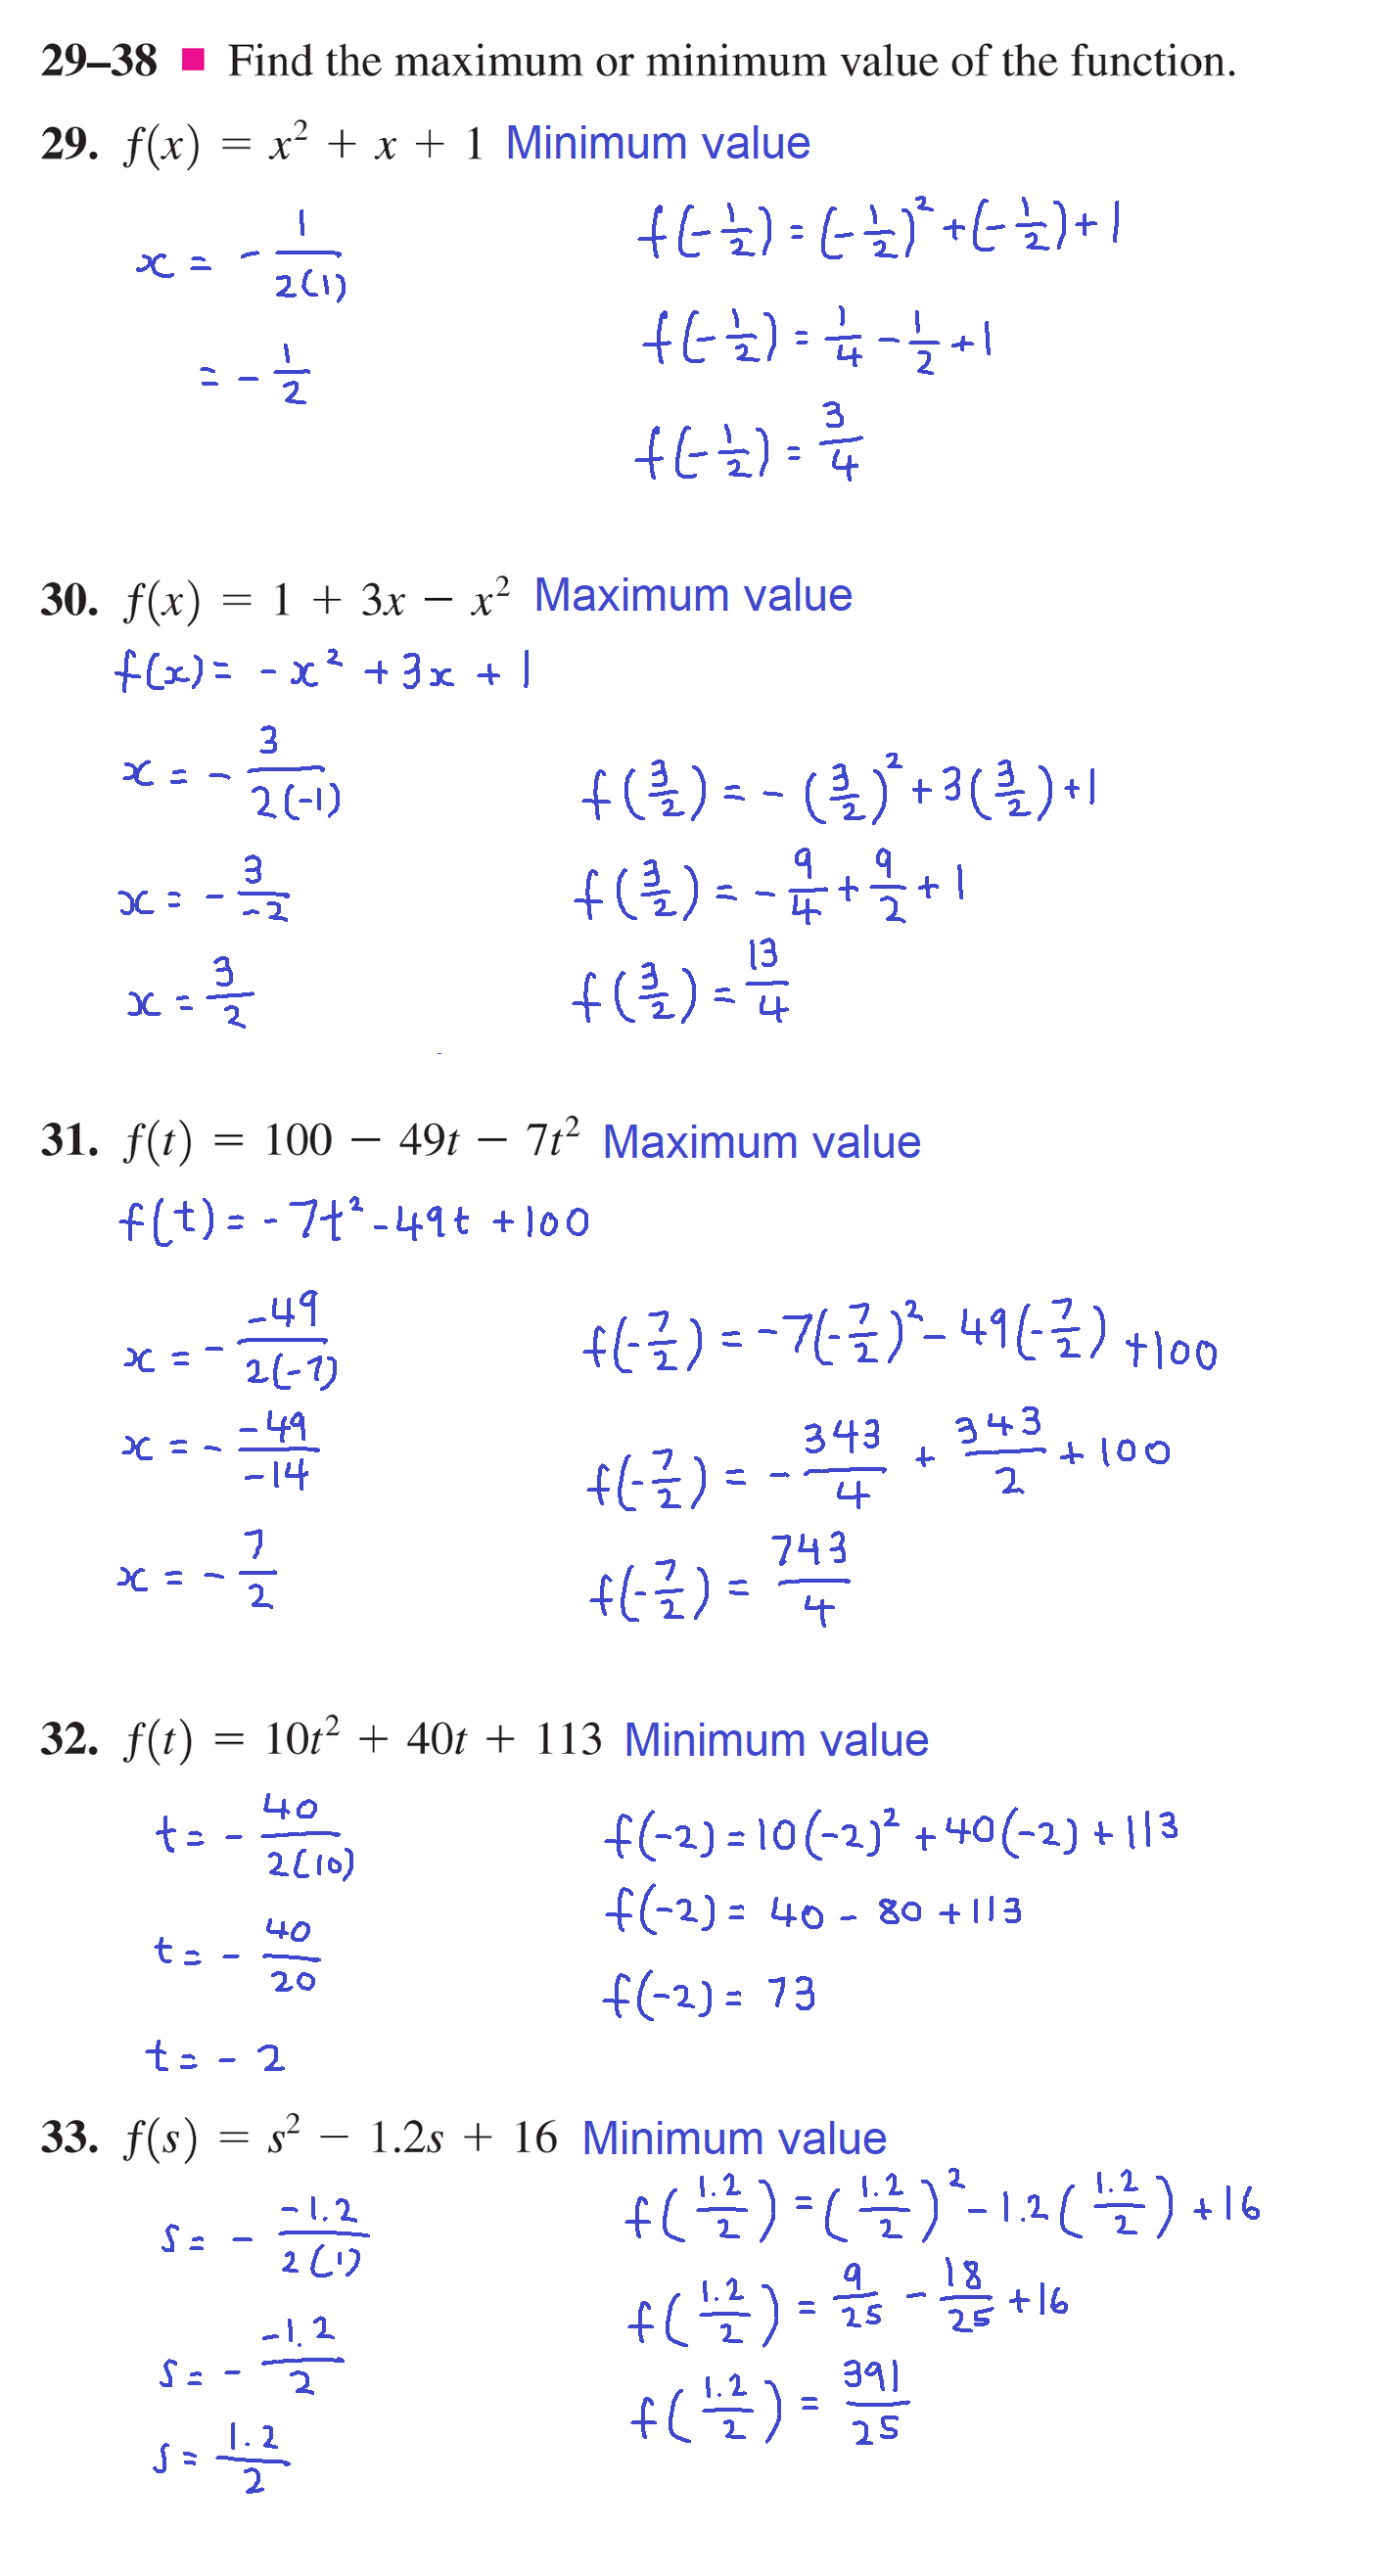 29–38 ■ Find the maximum or minimum value of the function.
29. f(x) = x² + x + 1 Minimum value
x = - 1/2(1)
= - 1/2
f(-1/2) = (-1/2)² + (-1/2) + 1
f(-1/2) = 1/4 - 1/2 + 1
f(-1/2) = 3/4
30. f(x) = 1 + 3x − x² Maximum value
f(x) = - x² + 3x + 1
x = - 3/2(-1)
x = - 3/-2
x = 3/2
f(3/2) = - (3/2)² + 3(3/2) + 1
f(3/2) = - 9/4 + 9/2 + 1
f(3/2) = 13/4
31. f(t) = 100 − 49t − 7t² Maximum value
f(t) = - 7t² - 49t + 100
x = - -49/2(-7)
x = - -49/-14
x = - 7/2
f(-7/2) = -7(-7/2)² - 49(-7/2) + 100
f(-7/2) = - 343/4 + 343/2 + 100
f(-7/2) = 743/4
32. f(t) = 10t² + 40t + 113 Minimum value
t = - 40/2(10)
t = - 40/20
t = - 2
f(-2) = 10(-2)² + 40(-2) + 113
f(-2) = 40 - 80 + 113
f(-2) = 73
33. f(s) = s² − 1.2s + 16 Minimum value
s = - -1.2/2(1)
s = - -1.2/2
s = 1.2/2
f(1.2/2) = (1.2/2)² - 1.2(1.2/2) + 16
f(1.2/2) = 9/25 - 18/25 + 16
f(1.2/2) = 391/25